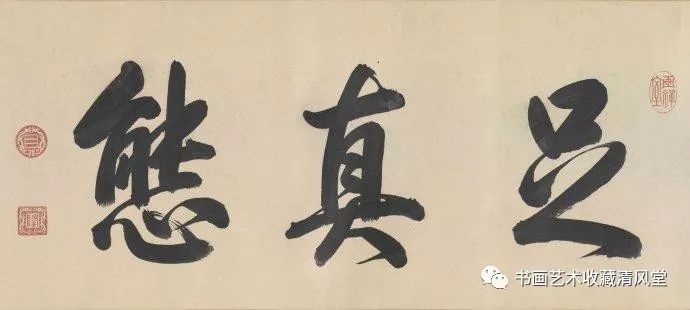 足真態
书画艺术收藏清风堂